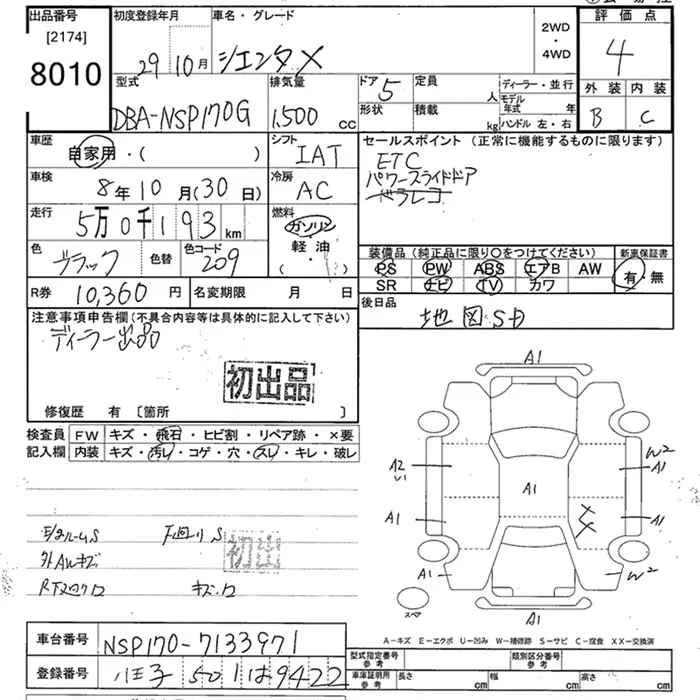 出品番号
[2174]
8010
初度登録年月
29 10月
車名・グレード
シエンタ X
2WD
・
4WD
評価点
4
外装 内装
B C
型式
DBA-NSP170G
排気量
1,500 cc
ドア 5
形状
定員 人
積載 kg
ディーラー・並行
モデル年式 年
ハンドル 左・右
車歴
自家用・( )
シフト
IAT
セールスポイント(正常に機能するものに限ります)
ETC
パワースライドドア
車検
8年10月(30日)
冷房
AC
走行
5万0千193km
燃料
ガソリン
軽油
( ・ )
色
ブラック
色替
色コード
209
装備品(純正品に限り○をつけてください)
PS PW ABS エアB AW
SR ナビ TV カワ
新車保証書
有 無
R券 10,360円
名変期限 月 日
後日品
地図SD
注意事項申告欄(不具合内容等は具体的に記入して下さい)
ディーラー出品
初出品
修復歴 有 [箇所 ]
検査員記入欄
FW キズ・飛石・ヒビ割・リペア跡・×要
内装 キズ・汚レ・コゲ・穴・スレ・キレ・破レ
下廻りS
初出
外AWキズ
A1
A2
A1
A1
A1
A1
W2
A1
A1
W2
A1
スペア
A-キズ E-エクボ U-凹み W-補修跡 S-サビ C-腐食 XX-交換済
車台番号 NSP170-7133971
登録番号 八王子 501 は 9422
型式指定番号 参考
類別区分番号 参考
車庫証明用 参考
長さ cm 幅 cm 高さ cm